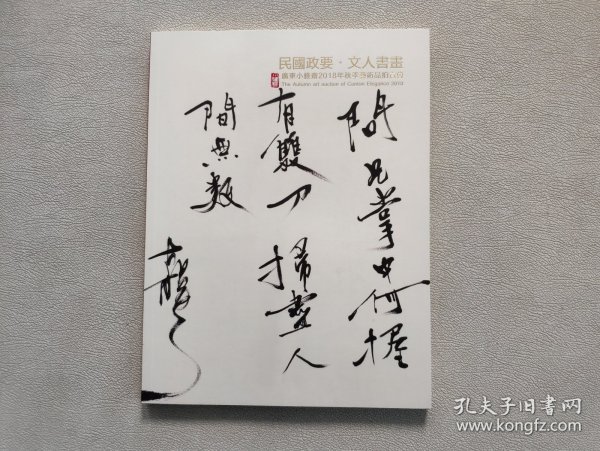 民國政要·文人書畫
廣東小雅齋2018年秋季藝術品拍賣會
The Autumn art auction of Canton Elegance 2018
問兄掌中何握
有雙刀掃盡人
間無數
孔夫子旧书网
www.kongfz.com